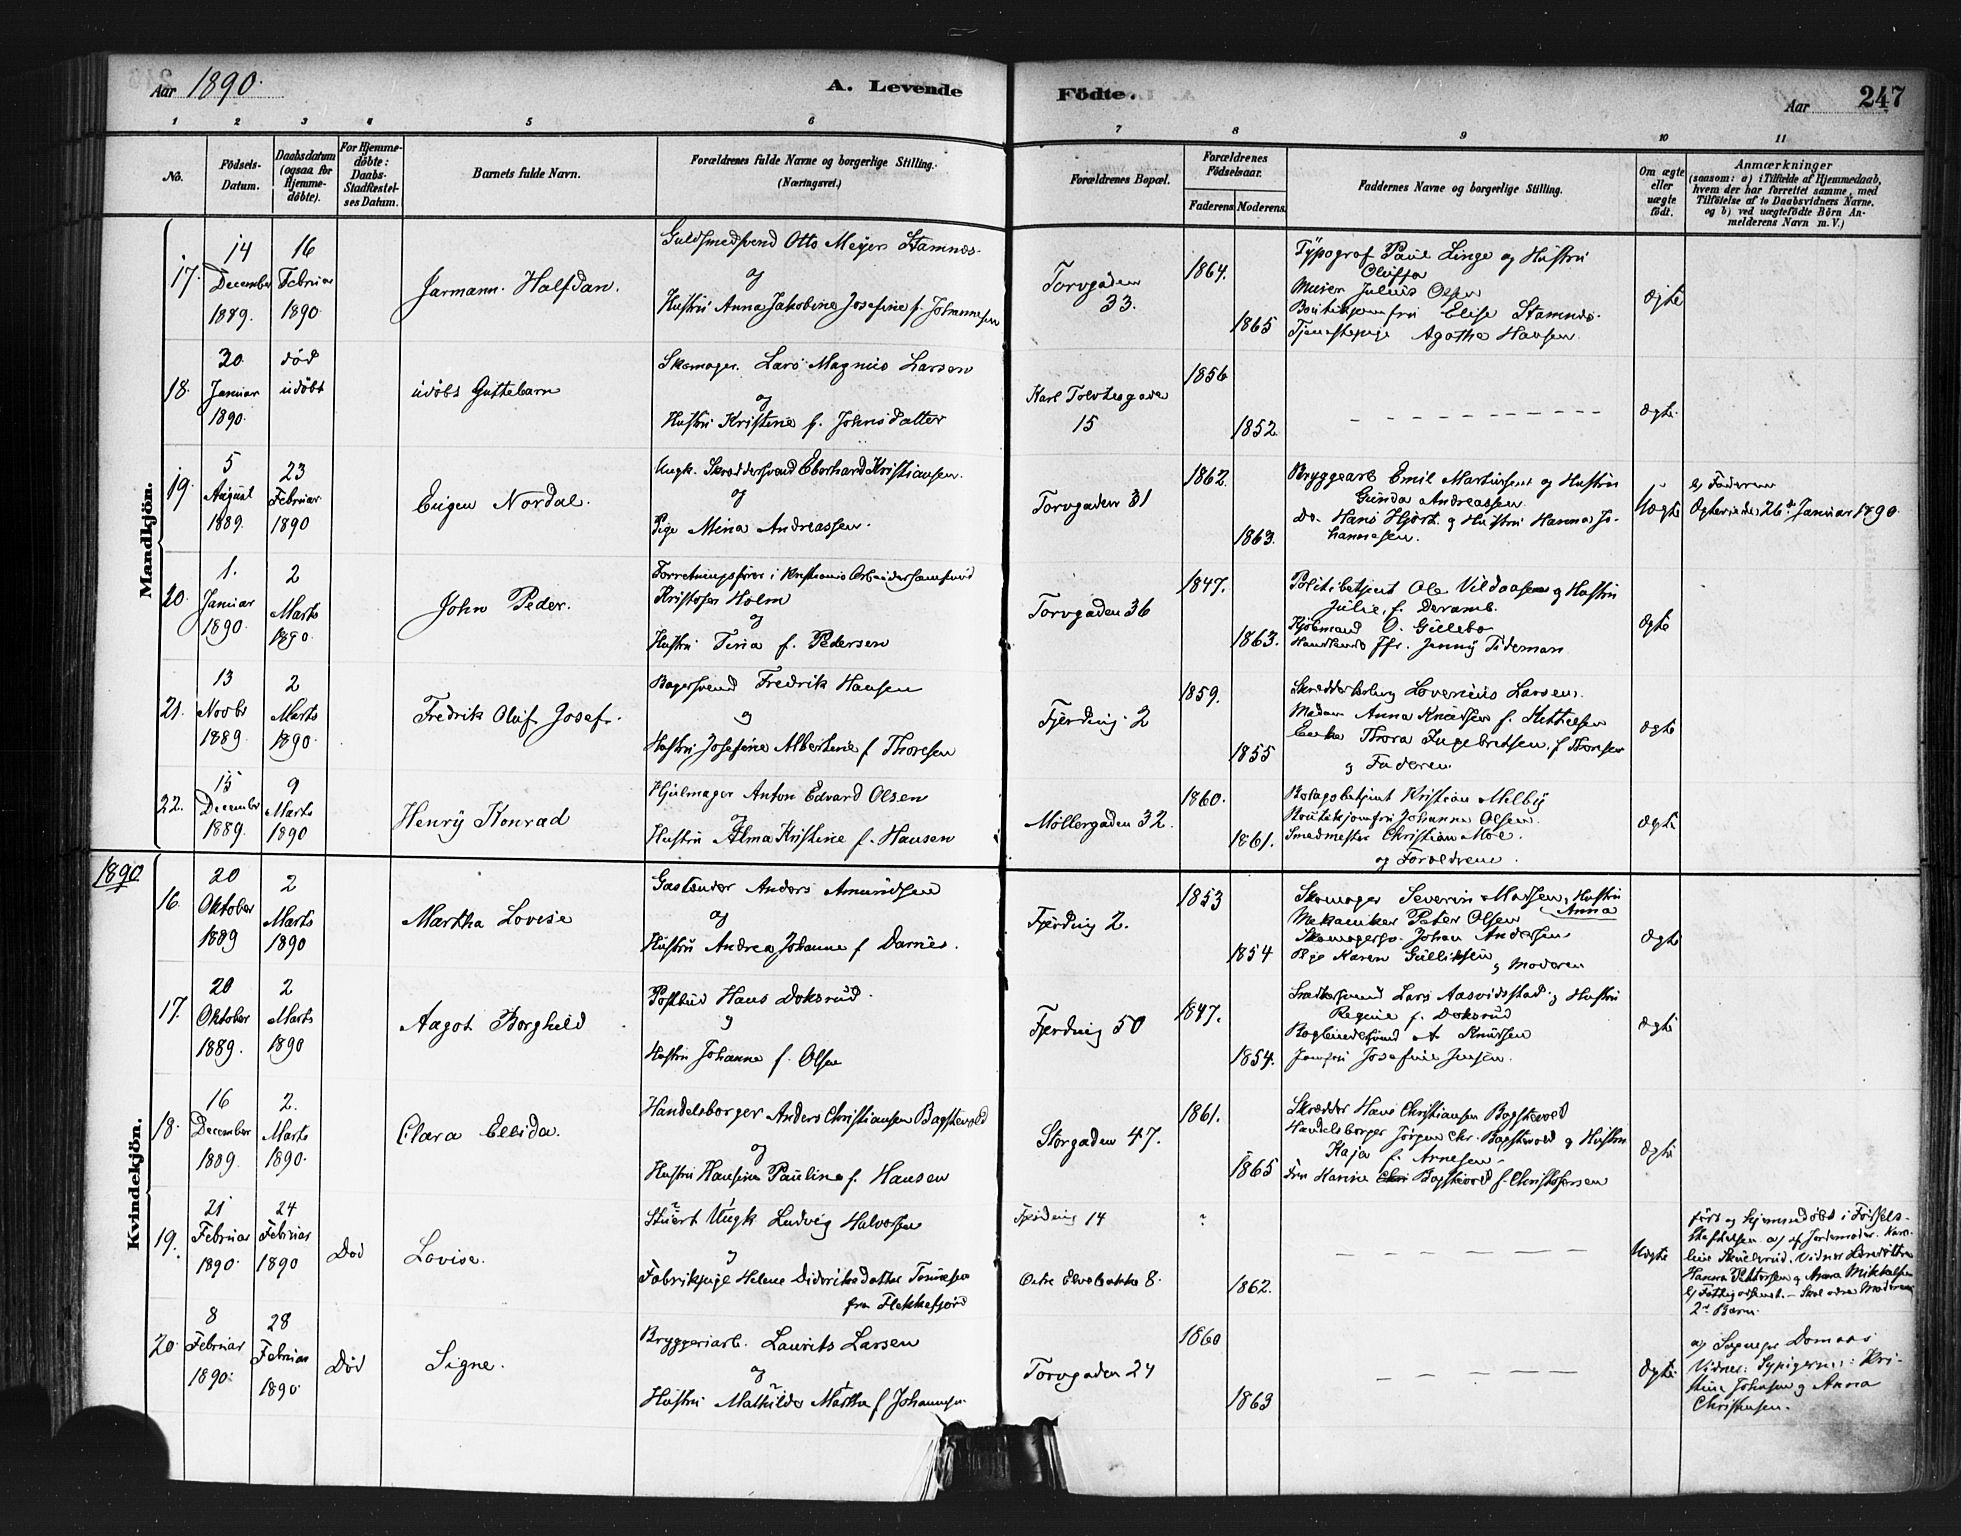 Aar 1890.
A. Levende
Födte.
Aar
247
1 2 3 4 5 6 7 8 9 10 11
No.
Födsels-
Datum.
Daabsdatum
(ogsaa for
Hjemme-
döbte).
For Hjemme-
döbte:
Daabs-
Stadfæstel-
ses Datum.
Barnets fulde Navn.
Forældrenes fulde Navne og borgerlige Stilling.
(Næringsvei.)
Forældrenes Bopæl.
Forældrenes
Födselsaar.
Faderens Moderens
Faddernes Navne og borgerlige Stilling.
Om ægte
eller
uægte
födt.
Anmærkninger
(saasom: a) i Tilfælde af Hjemmedaab,
hvem der har forrettet samme, med
Tilföielse af to Daabsvidners Navne,
og b) ved uægtefödte Börn An-
melderens Navn m. V.)
Mandkjön.
17.
14
December
1889.
16
Februar
1890.
Jarmann. Halfdan.
Guldsmedsvend Otto Meyer Stamnæs
og
Hustru Anna Jakobine Josefine f. Johannesen
Torvgaden
33.
1864.
1865
Typograf Paul Linge og Hustru
Julius Olsen
Elise Stamnæs
Tjenestepige Agathe Hansen
ægte
18.
30
Januar
1890.
död
udöbt
udöbt Guttebarn
Skomager. Lars Magnus Larsen
og
Hustru Kristine f. Johnsdatter
Karl Tolvtesgade
15
1856
1852
ægte
19.
5
August
1889.
23
Februar
1890
Eugen Nordal.
Ungk. Skræddersvend Eberhard Kristiansen.
og
Pige Mina Andreassen.
Torvgaden 31
1862.
1863.
Bryggearb Emil Martinsen og Hustru
Gunda Andreassen
Do. Hans Hjort og Hustru Hanna Jo-
hannesen.
Uægte
b) Faderen
26 Januar 1890.
20.
1.
Januar
1890.
2
Marts
1890.
John Peder.
Forretningsförer i Kristiania Arbeidersamfund
Kristofer Holm
og
Hustru Tina f. Pedersen
Torvgaden 36
1847.
1863.
Politibetjent Ole og Hustru
Julie f.
Kjöbmand O. Gullebo
Jenny Tideman
ægte
21.
13
Novbr
1889.
2
Marts
1890.
Fredrik Oluf Josef.
Bagersvend Fredrik Hansen
og
Hustru Josefine Albertine f Thoresen
Fjerding. 2
1859.
1855
Larsen.
Madam Anna Knudsen f. Kittelsen
Enke Thora Ingebretsen, f Thoresen
og Faderen
ægte
22.
15
December
1889.
9
Marts
1890
Henry Konrad
Hjulmager Anton Edvard Olsen
og
Hustru Alma Kristine f. Hansen
Möllergaden 32.
1860.
1861.
Kristian Melby
Johanne Olsen.
Smedmester Christian Moe.
og Forældrene.
ægte
1890
Kvindekjön.
16.
20
Oktober
1889
2
Marts
1890
Martha Lovise
Anders Amundsen
og
Hustru Andrea Johanne f Darnes.
Fjerding 2.
1853
1854
Skomager Severin Madsen, Hustru
Anna
Mekaniker Peter Olsen
Johan Andersen
Pige Karen Gulliksen
og Moderen
ægte
17.
20
Oktober
1889.
2
Marts
1890
Aagot Borghild
Postbud Hans Doksrud.
og
Hustru Johanne f. Olsen
Fjerding 50
1847.
1854.
Lars Aasvidstad og Hustru
Regine f. Doksrud
Bogbindersvend A Knudsen
Jomfru Josefine Jensen.
ægte
18.
16
December
1889.
2.
Marts
1890.
Clara Ellida.
Handelsborger Anders Christiansen Bagstevold
og
Hustru Hansine Pauline f. Hansen
Storgaden 47.
1861.
1865
Skrædder Hans Christiansen Bagstevold
Handelsborger Jörgen Chr. Bagstevold og Hustru
Kaja f. Arnesen
Fru Harine Bagstevold f. Christofersen
ægte
19.
21
Februar
1890.
24
Februar
1890
Död
Lovise.
Ungk Ludvig Halvorsen
og
Fabrikpige Helene Dideriksdatter Tönnesen
fra Flekkefjord
Fjerding 14
Östre Elvebakke 8.
?
1862.
Uægte
födt og hjemmedöbt i Födsels-
stiftelsen a) af Jordemoder. Karo-
line
Hanna Pettersen og Anna Mikkelsen
2 Barn
20.
8
Februar
1890.
28
Februar
1890.
Död
Signe.
Bryggeriarb. Laurits Larsen
og
Hustru Mathilde Martha f Johannesen
Torvgaden 24
1860
1863
ægte
a)
Vidner: Sypigerne: Kri-
stine Johnsen og Anna
Christensen.